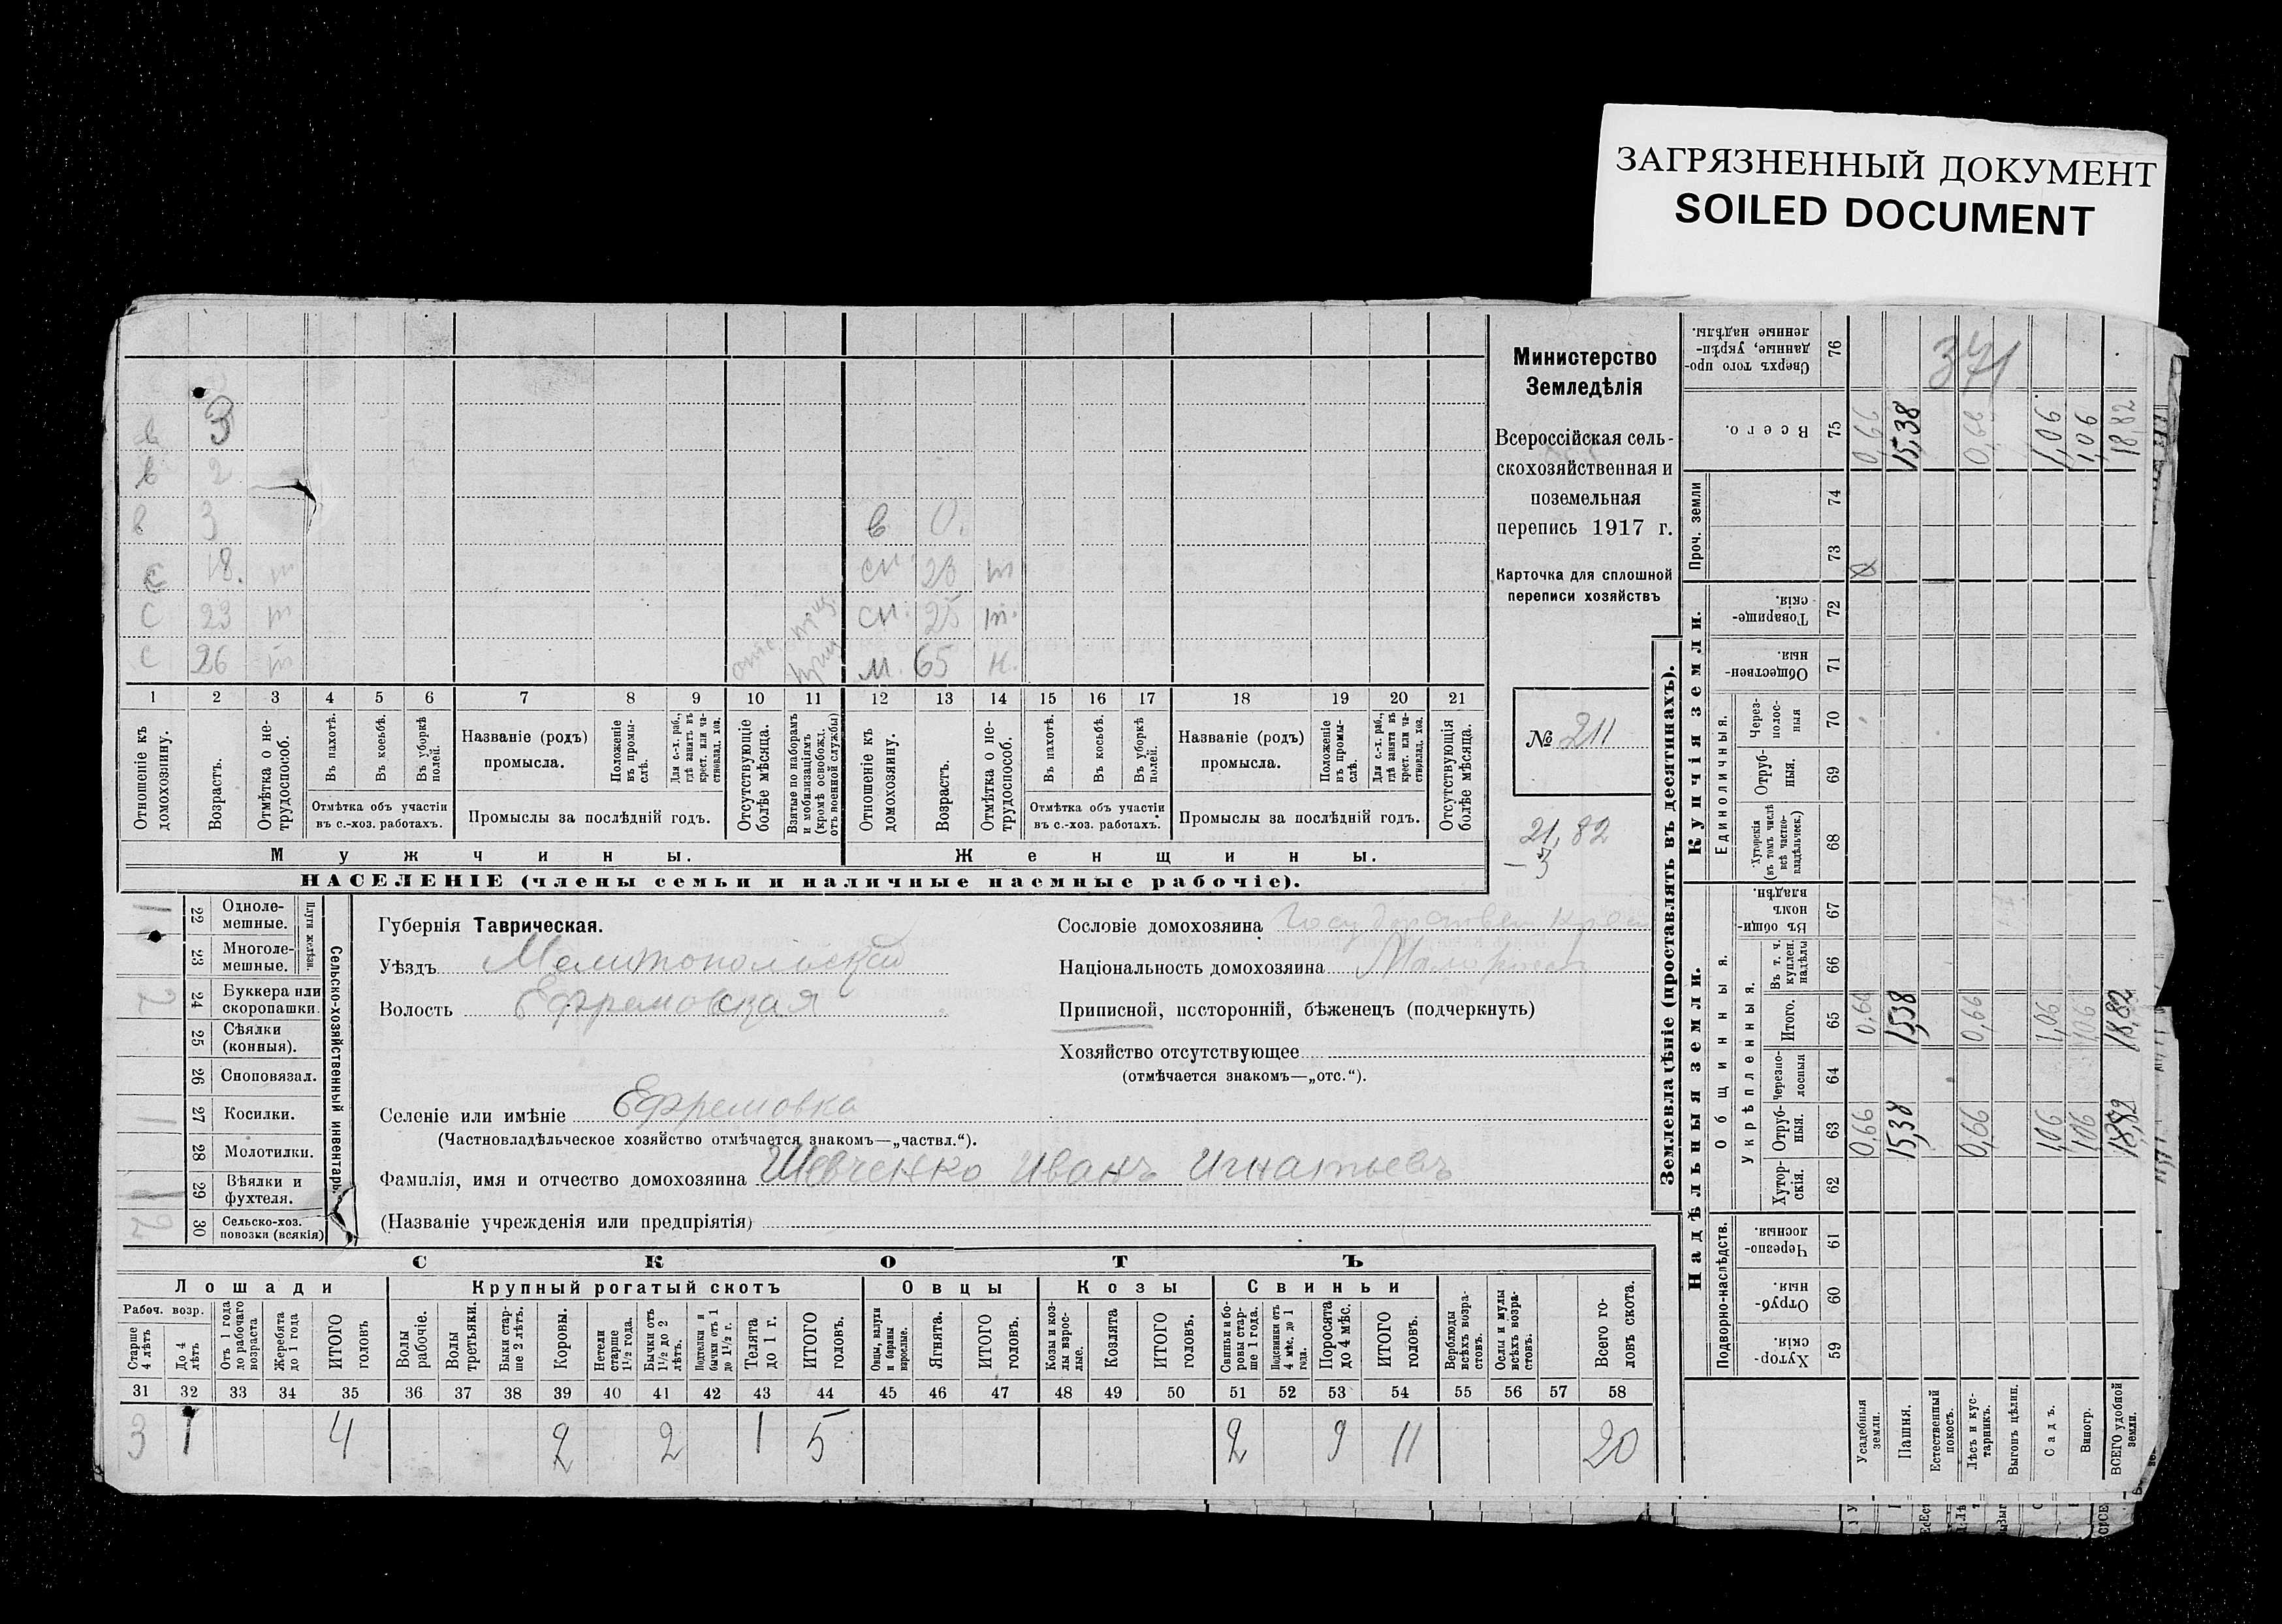 ЗАГРЯЗНЕННЫЙ ДОКУМЕНТ
SOILED DOCUMENT
Министерство
Земледѣлія
Всероссійская сель-
скохозяйственная и
поземельная
перепись 1917 г.
Карточка для сплошной
переписи хозяйствъ
№ 211
21,82
— 3
в 3
в 2
в 3 в 0.
с 18. т сн. 23 т
с 23 т сн. 25 т.
с 26 т м. 65 н.
1 2 3 4 5 6 7 8 9 10 11 12 13 14 15 16 17 18 19 20 21
Отношеніе къ домохозяину.
Возрастъ.
Отмѣтка о не-трудоспособ.
Въ пахотѣ.
Въ косьбѣ.
Въ уборкѣ полей.
Отмѣтка объ участіи
въ с.-хоз. работахъ.
Названіе (родъ)
промысла.
Положеніе въ промы-слѣ.
Для с.-х. раб., гдѣ занятъ въ крест. или ча-стновлад. хоз.
Промыслы за послѣдній годъ.
Отсутствующіе болѣе мѣсяца.
Взятые по наборамъ и мобилизаціямъ (кромѣ освобожд. отъ военной службы)
Отношеніе къ домохозяину.
Возрастъ.
Отмѣтка о не-трудоспособ.
Въ пахотѣ.
Въ косьбѣ.
Въ уборкѣ полей.
Отмѣтка объ участіи
въ с.-хоз. работахъ.
Названіе (родъ)
промысла.
Положеніе въ промы-слѣ.
Для с.-х. раб., гдѣ занята въ крест. или ча-стновлад. хоз.
Промыслы за послѣдній годъ.
Отсутствующія болѣе мѣсяца.
Мужчины. Женщины.
НАСЕЛЕНІЕ (члены семьи и наличные наемные рабочіе).
Сельско-хозяйственный инвентарь.
Плуги желѣзн.
1 22 Одноле-мешные.
23 Многоле-мешные.
2 24 Буккера или скоропашки.
25 Сѣялки (конныя).
26 Сноповязал.
1 27 Косилки.
28 Молотилки.
1 29 Вѣялки и фухтеля.
2 30 Сельско-хоз. повозки (всякія)
Губернія Таврическая.
Уѣздъ Мелитопольскій
Волость Ефремовская
Селеніе или имѣніе Ефремовка
(Частновладѣльческое хозяйство отмѣчается знакомъ—„частвл.“).
Фамилія, имя и отчество домохозяина Шевченко Иванъ Игнатьевъ
(Названіе учрежденія или предпріятія)
Сословіе домохозяина Государствен крест
Національность домохозяина Малоросс
Приписной, посторонній, бѣженец (подчеркнуть)
Хозяйство отсутствующее
(отмѣчается знакомъ—„отс.“).
СКОТЪ
Лошади Крупный рогатый скотъ Овцы Козы Свиньи
Рабоч. возр.
Старше 4 лѣтъ
До 4 лѣтъ
Отъ 1 года до рабочаго возраста
Жеребята до 1 года
ИТОГО головъ
Волы рабочіе.
Волы третьяки.
Быки стар-ше 2 лѣтъ.
Коровы.
Нетели старше 1½ года.
Бычки отъ 1½ до 2 лѣтъ.
Подтелки и бычки отъ 1 до 1½ г.
Телята до 1 г.
ИТОГО головъ.
Овцы, валухи и бараны взрослые.
Ягнята.
ИТОГО головъ.
Козы и коз-лы взрос-лые.
Козлята
ИТОГО головъ.
Свиньи и бо-ровы стар-ше 1 года.
Подсвинки отъ 4 мѣс. до 1 года.
Поросята до 4 мѣс.
ИТОГО головъ.
Верблюды всѣхъ возра-стовъ.
Ослы и мулы всѣхъ возра-стовъ.
Всего го-ловъ скота.
31 32 33 34 35 36 37 38 39 40 41 42 43 44 45 46 47 48 49 50 51 52 53 54 55 56 57 58
3 1 4 2 2 1 5 2 9 11 20
Землевладѣніе (проставлять въ десятинахъ).
Надѣльныя земли. Купчія земли.
Проч. земли
Подворно-наслѣдств.
Общинныя.
Укрѣпленныя.
Единоличныя.
Хутор-скія. 59
Отруб-ныя. 60
Черезпо-лосныя 61
Хутор-скія. 62
Отруб-ныя. 63
Черезпо-лосныя 64
Итого. 65
Въ т. ч. куплен. надѣлы 66
Въ общи-номъ владѣн. 67
Хуторскія (въ томъ числѣ всѣ частно-владѣльческ.) 68
Отруб-ныя. 69
Через-полос-ныя 70
Обществен-ныя. 71
Товарище-скія. 72
73
74
Всего. 75
Сверхъ того про-данные, укрѣп-ленные надѣлы. 76
371
Усадебныя земли. 0,66 0,66 0,66
Пашня. 15,38 15,38 15,38
Естественный покосъ.
Лѣсъ и кус-тарникъ. 0,66 0,66 0,66
Выгонъ цѣлин.
Садъ. 1,06 1,06 1,06
Виногр. 1,06 1,06 1,06
ВСЕГО удобной земли. 18,82 18,82 18,82